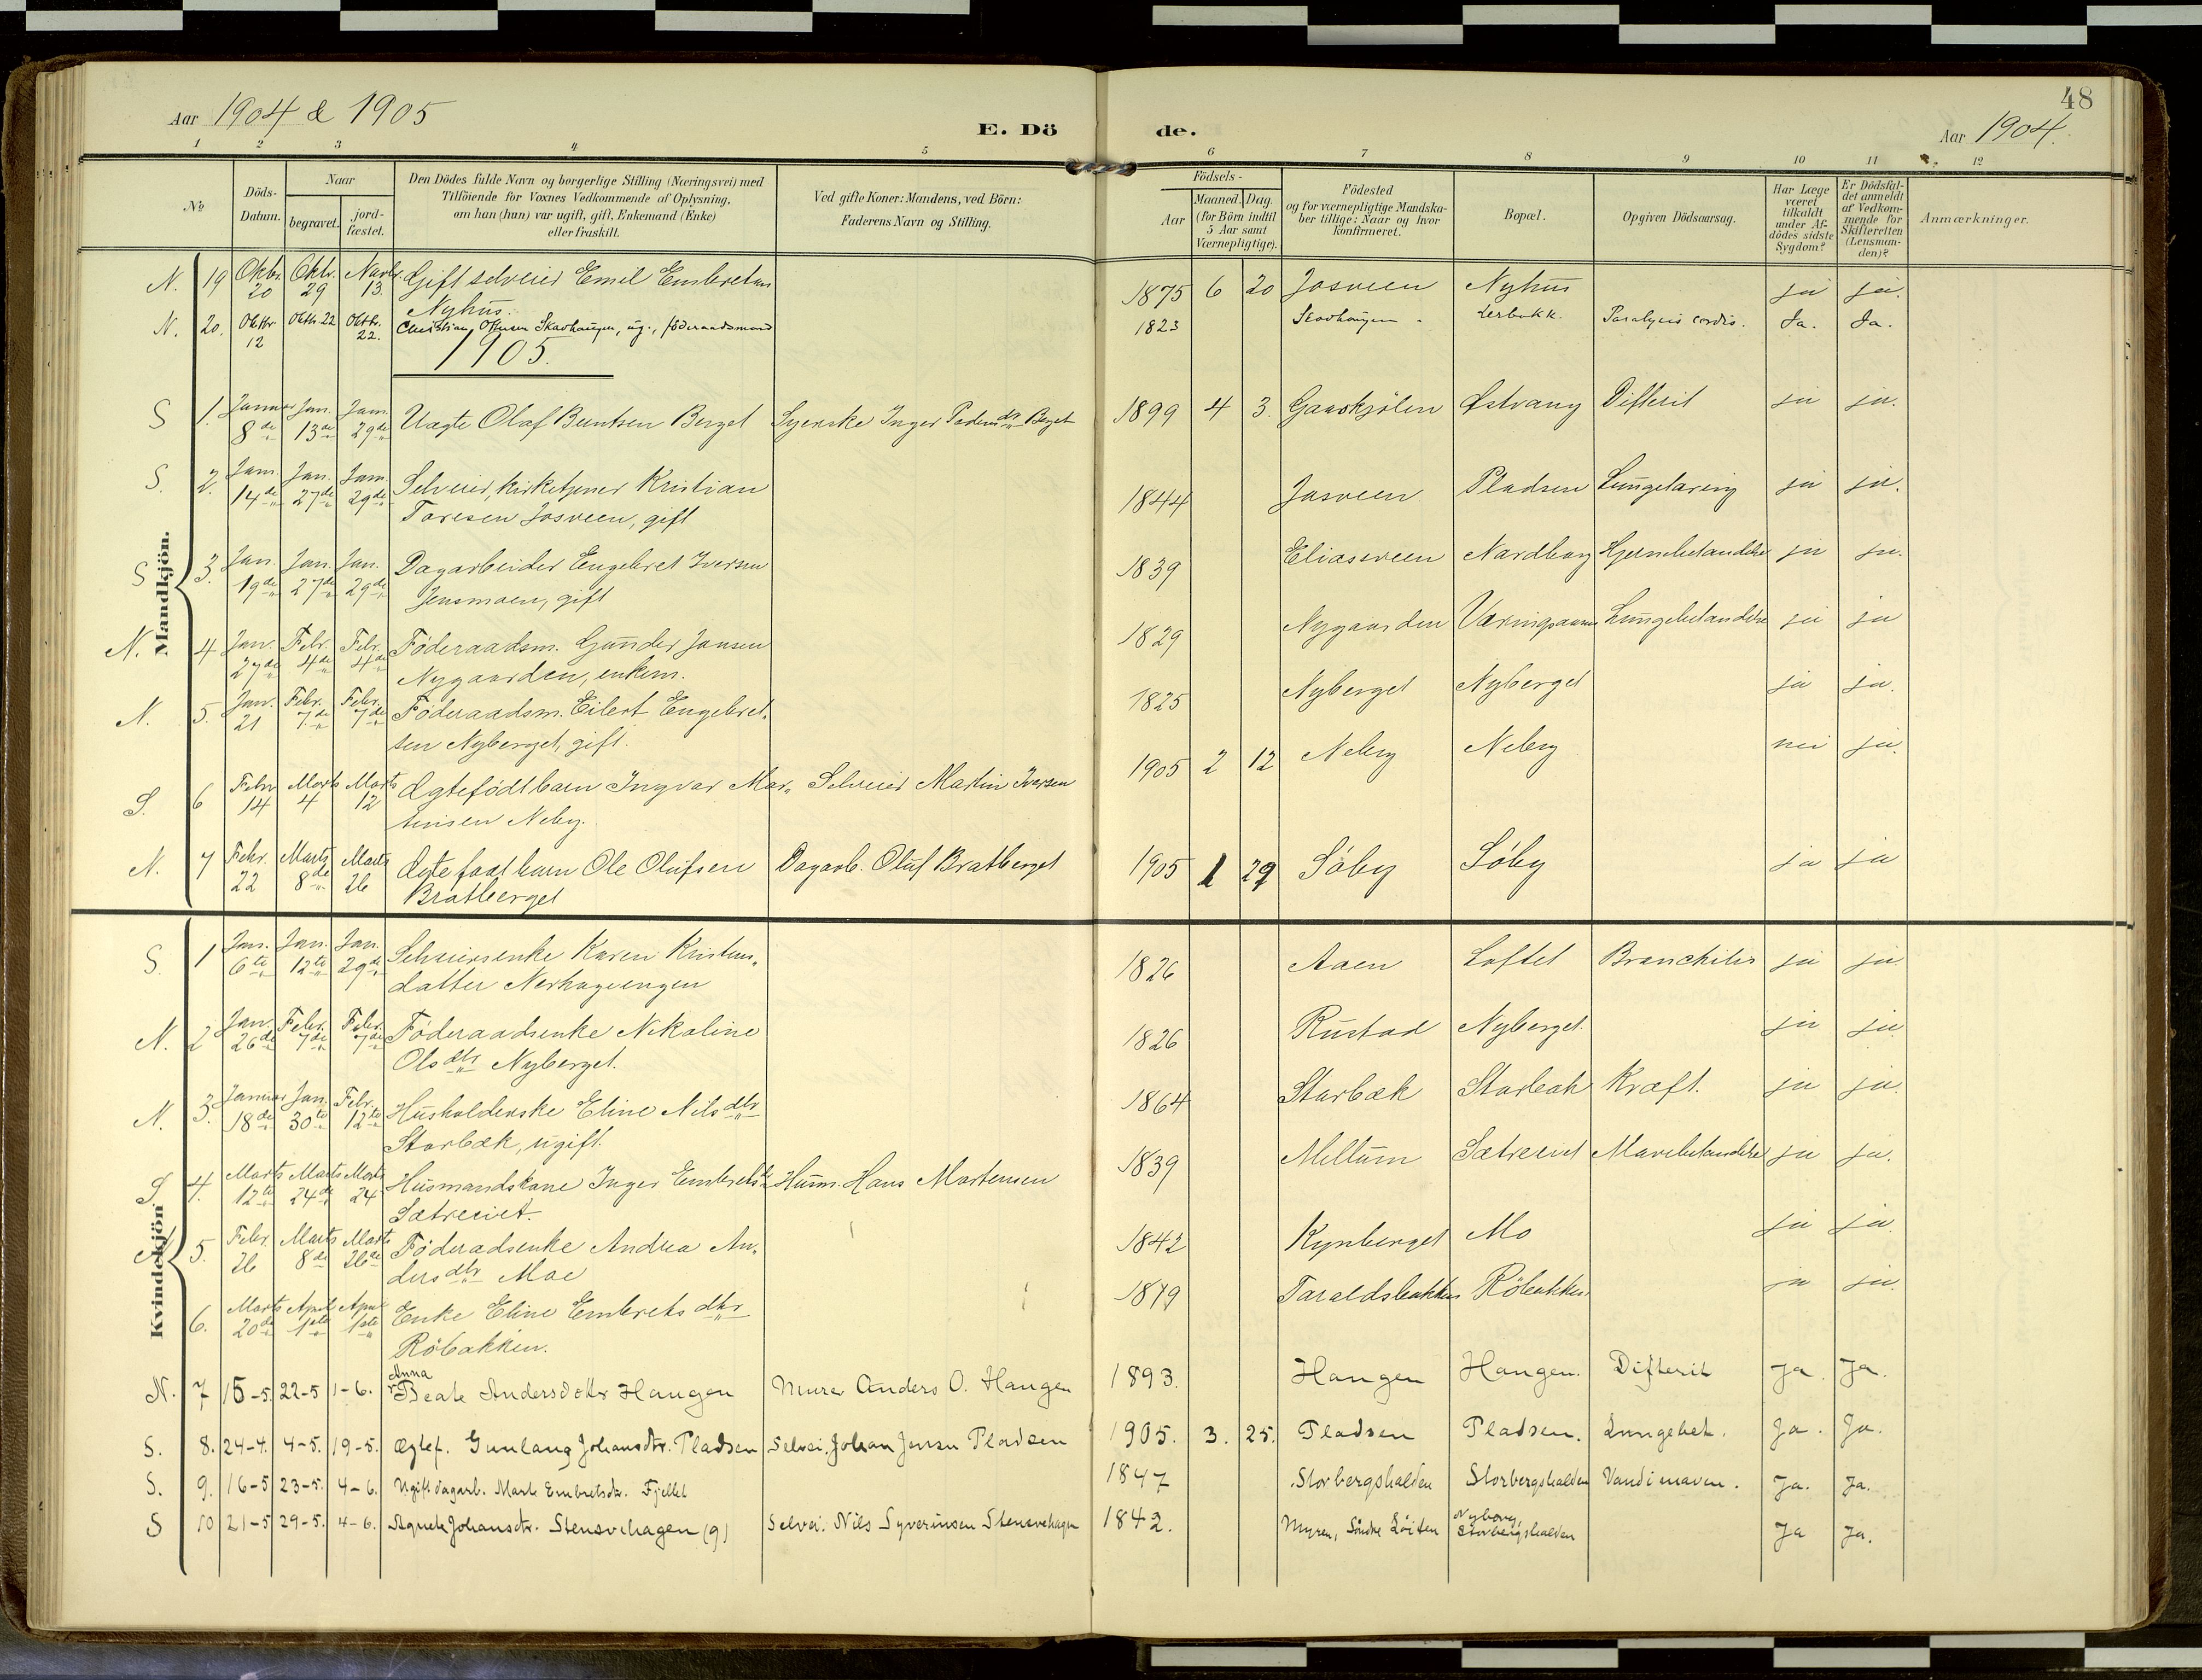 48
Aar 1904 & 1905
E. Dö de.
Aar 1904.
1 2 3 4 5 6 7 8 9 10 11 12
No
Döds-Datum.
Naar
begravet.
jord-fæstet.
Den Dödes fulde Navn og borgerlige Stilling (Næringsvei) med
Tilföiende for Voxnes Vedkommende af Oplysning,
om han (hun) var ugift, gift, Enkemand (Enke)
eller fraskilt.
Ved gifte Koner: Mandens, ved Börn:
Faderens Navn og Stilling.
Födsels-
Aar
Maaned. Dag.
(for Börn indtil
5 Aar samt
Værnepligtige).
Födested
og for værnepligtige Mandska-
ber tillige: Naar og hvor
konfirmeret.
Bopæl.
Opgiven Dödsaarsag.
Har Læge
været
tilkaldt
under Af-
dödes sidste
Sygdom?
Er Dödsfal-
det anmeldt
af Vedkom-
mende for
Skifteretten
(Lensman-
den)?
Anmærkninger.
Mandkjön.
N. 19 Oktbr. 20 Oktr. 29 Novbr. 13. Gift selveier Emil Embretsen Nyhus. 1875 6 20 Josveen Nyhus ja ja.
N. 20. Oktbr. 12 Oktbr. 22 Oktbr. 22. Christian Olsen Skovhaugen, ug., föderaadsmand 1823 Skovhaugen Paralysis cordis. Ja. Ja.
1905.
S 1. Januar 8de Jan. 13de Jan. 29de Uægte Olaf Berntsen Berget Syerske Inger Pedersdtr Berget 1899 4 3. Gaaskjölen Østvang Difterit ja ja.
S. 2. Jan. 14de Jan. 27de Jan. 29de Selveier, kirketjener Kristian Toresen Josveen, gift 1844 Josveen Pladsen ja ja.
S 3. Jan. 19de Jan. 27de Jan. 29de Dagarbeider Engebret Iversen Jensmoen, gift 1839 Eliasveen Nordberg ja ja.
N. 4 Jan. 27de Febr. 4de Febr. 4de Föderaadsm. Gunder Jansen Nygaarden, enkem. 1829 Nygaarden Lungebetændelse ja ja
N. 5. Jan. 21 Febr. 7de Febr. 7de Föderaadsm. Eilert Engebret-
sen Nyberget, gift. 1825 Nyberget Nyberget ja ja.
S. 6 Febr 14 Marts 4 Marts 12 Ægtefödt barn Ingvar Mar-
tinsen Neby. Selveier Martin Iversen 1905 2 12 Neby Neby nei ja.
N. 7 Febr. 22 Marts 8de Marts 26 Ægtefödt barn Ole Olufsen Bratberget Dagarb. Oluf Bratberget 1905 1 29 Söby Söby ja ja
Kvindekjön
S. 1 Jan. 6te Jan. 12te Jan. 29de Selveierenke Karen Kristens-
datter Nerhagaengen 1826 Aaen Loftet Bronchitis ja ja.
N. 2 Jan. 26de Febr. 7de Febr. 7de Föderaadsenke Nikoline Olsdtr Nyberget. 1826 Rustad Nyberget. ja ja.
N. 3. Januar 18de Jan. 30te Febr. 12te Husholderske Eline Nilsdtr Storbæk, ugift. 1864 Storbæk Storbæk Kræft. ja ja.
S. 4. Marts 12te Marts 24de Marts 24 Husmandskone Inger Embretsd. Sætreeiet. Husm. Hans Mortensen 1839 Mellum Sætreeiet Mavebetændelse ja ja.
N. 5. Febr. 26 Marts 8de Marts 26de Föderaadsenke Andrea An-
dersdtr Moe 1842 Kynberget Mo ja ja.
6. Marts 20de April 1ste April 1ste Enke Eline Embretsdtr Röbakken. 1849 Taraldsbakken Röbakken ja ja.
N. 7 15-5. 22-5 1-6. Anna Beate Andersdotter Haugen Murer Anders O. Haugen 1893. Haugen Haugen. Difterit Ja. Ja.
S. 8. 24-4. 4-5. 19-5. Ægtef. Gunlaug Johansdtr. Pladsen Selvei. Johan Jensen Pladsen 1905. 3. 25. Pladsen Pladsen. Lungebet. Ja. Ja.
S. 9. 16-5 23-5. 4-6. Ugift dagarb. Marte Embretsdtr. Fjellet 1847 Storbergshalden Storbergshalden Vand i maven. Ja. Ja.
S 10 21-5 29-5. 4-6. Agnete Johansdtr. Stensvehagen (g) Selvei. Nils Syverinsen Stensvehagen 1842. Myren, Söndre Löiten Nyborg, Storbergshalden Ja Ja.